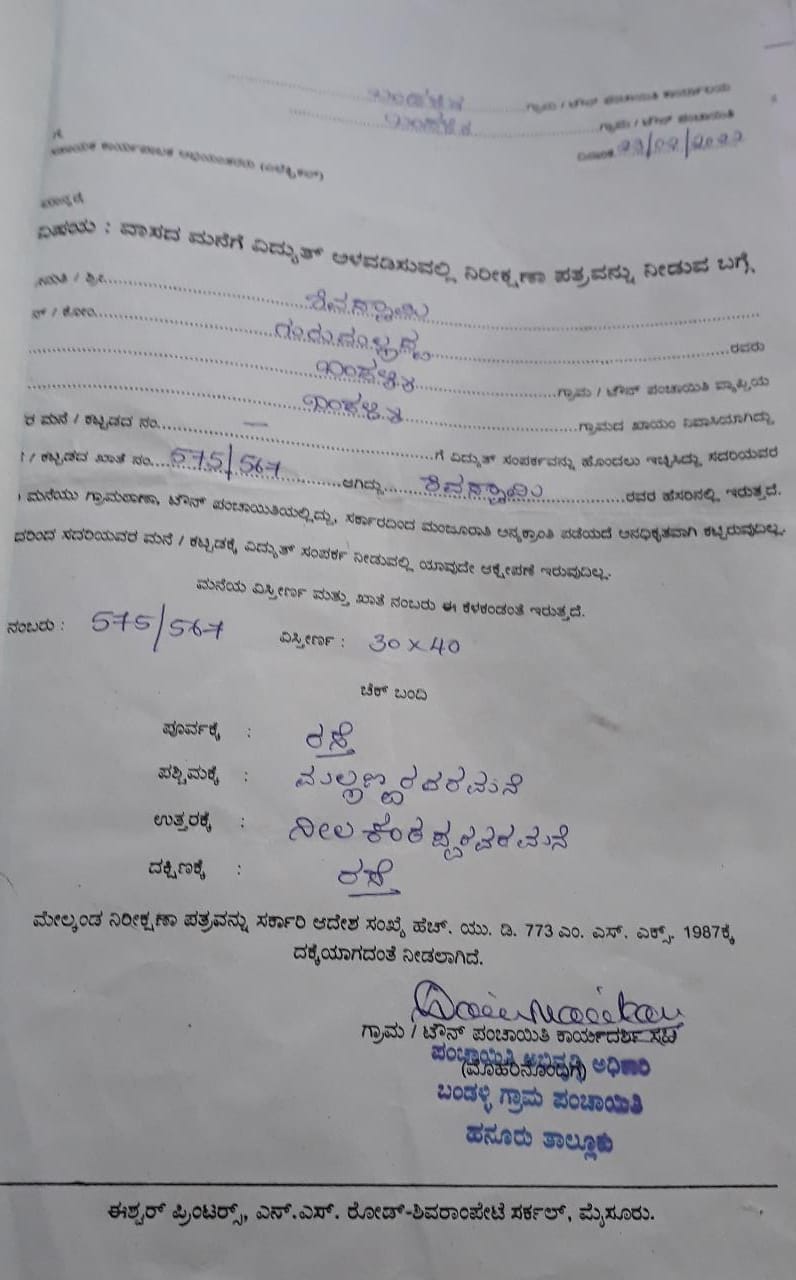 ಬಂಡಳ್ಳಿ ಗ್ರಾಮ / ಟೌನ್ ಪಂಚಾಯಿತಿ ಕಾರ್ಯಾಲಯ
ಬಂಡಳ್ಳಿ ಗ್ರಾಮ / ಟೌನ್ ಪಂಚಾಯಿತಿ
ದಿನಾಂಕ
ಕಾರ್ಯಪಾಲಕ
ಮಾನ್ಯರೆ,
ವಿಷಯ : ವಾಸದ ಮನೆಗೆ ವಿದ್ಯುತ್ ಅಳವಡಿಸುವಲ್ಲಿ ನಿರೀಕ್ಷಣಾ ಪತ್ರವನ್ನು ನೀಡುವ ಬಗ್ಗೆ.
/ ಶ್ರೀ ಶಿವಸ್ವಾಮಿ
/ ಕೋಂ ರವರು
ಬಂಡಳ್ಳಿ ಗ್ರಾಮ / ಟೌನ್ ಪಂಚಾಯಿತಿ ವ್ಯಾಪ್ತಿಯ
ಬಂಡಳ್ಳಿ ಗ್ರಾಮದ ಖಾಯಂ ನಿವಾಸಿಯಾಗಿದ್ದು
ರ ಮನೆ / ಕಟ್ಟಡದ ನಂ. — ಗೆ ವಿದ್ಯುತ್ ಸಂಪರ್ಕವನ್ನು ಹೊಂದಲು ಇಚ್ಛಿಸಿದ್ದು ಸದರಿಯವರ
/ ಕಟ್ಟಡದ ಖಾತೆ ನಂ. 575/567 ಆಗಿದ್ದು ಶಿವಸ್ವಾಮಿ ರವರ ಹೆಸರಿನಲ್ಲಿ ಇರುತ್ತದೆ.
ಮನೆಯು ಗ್ರಾಮಠಾಣಾ, ಟೌನ್ ಪಂಚಾಯಿತಿಯಲ್ಲಿದ್ದು, ಸರ್ಕಾರದಿಂದ ಮಂಜೂರಾತಿ ಅನ್ಯಕ್ರಾಂತಿ ಪಡೆಯದೆ ಅನಧಿಕೃತವಾಗಿ ಕಟ್ಟಿರುವುದಿಲ್ಲ.
ದರಿಂದ ಸದರಿಯವರ ಮನೆ / ಕಟ್ಟಡಕ್ಕೆ ವಿದ್ಯುತ್ ಸಂಪರ್ಕ ನೀಡುವಲ್ಲಿ ಯಾವುದೇ ಆಕ್ಷೇಪಣೆ ಇರುವುದಿಲ್ಲ.
ಮನೆಯ ವಿಸ್ತೀರ್ಣ ಮತ್ತು ಖಾತೆ ನಂಬರು ಈ ಕೆಳಕಂಡಂತೆ ಇರುತ್ತದೆ.
ನಂಬರು : 575/567 ವಿಸ್ತೀರ್ಣ : 30 × 40
ಚೆಕ್ ಬಂದಿ
ಪೂರ್ವಕ್ಕೆ : ರಸ್ತೆ
ಪಶ್ಚಿಮಕ್ಕೆ : ಮಲ್ಲಣ್ಣರವರ ಮನೆ
ಉತ್ತರಕ್ಕೆ : ನೀಲಕಂಠಪ್ಪರವರ ಮನೆ
ದಕ್ಷಿಣಕ್ಕೆ : ರಸ್ತೆ
ಮೇಲ್ಕಂಡ ನಿರೀಕ್ಷಣಾ ಪತ್ರವನ್ನು ಸರ್ಕಾರಿ ಆದೇಶ ಸಂಖ್ಯೆ ಹೆಚ್. ಯು. ಡಿ. 773 ಎಂ. ಎಸ್. ಎಕ್ಸ್. 1987ಕ್ಕೆ
ದಕ್ಕೆಯಾಗದಂತೆ ನೀಡಲಾಗಿದೆ.
ಗ್ರಾಮ / ಟೌನ್ ಪಂಚಾಯಿತಿ ಕಾರ್ಯದರ್ಶಿ ಸಹಿ
(ಮೊಹರಿನೊಂದಿಗೆ)
ಪಂಚಾಯಿತಿ ಅಭಿವೃದ್ಧಿ ಅಧಿಕಾರಿ
ಬಂಡಳ್ಳಿ ಗ್ರಾಮ ಪಂಚಾಯಿತಿ
ಹನೂರು ತಾಲ್ಲೂಕು
ಈಶ್ವರ್ ಪ್ರಿಂಟರ್ಸ್, ಎನ್.ಎಸ್. ರೋಡ್-ಶಿವರಾಂಪೇಟೆ ಸರ್ಕಲ್, ಮೈಸೂರು.